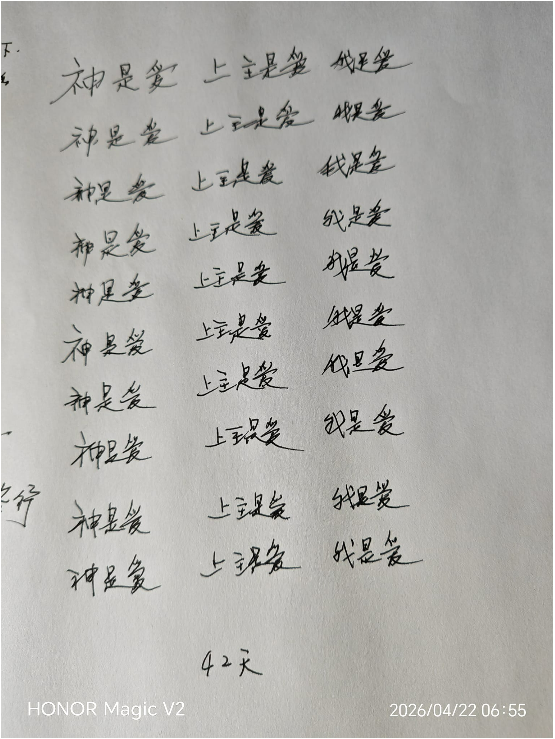 下.
神是爱 上主是爱 我是爱
神是爱 上主是爱 我是爱
神是爱 上主是爱 我是爱
神是爱 上主是爱 我是爱
神是爱 上主是爱 我是爱
神是爱 上主是爱 我是爱
神是爱 上主是爱 我是爱
神是爱 上主是爱 我是爱
神是爱 上主是爱 我是爱
神是爱 上主是爱 我是爱
42天
HONOR Magic V2 2026/04/22 06:55